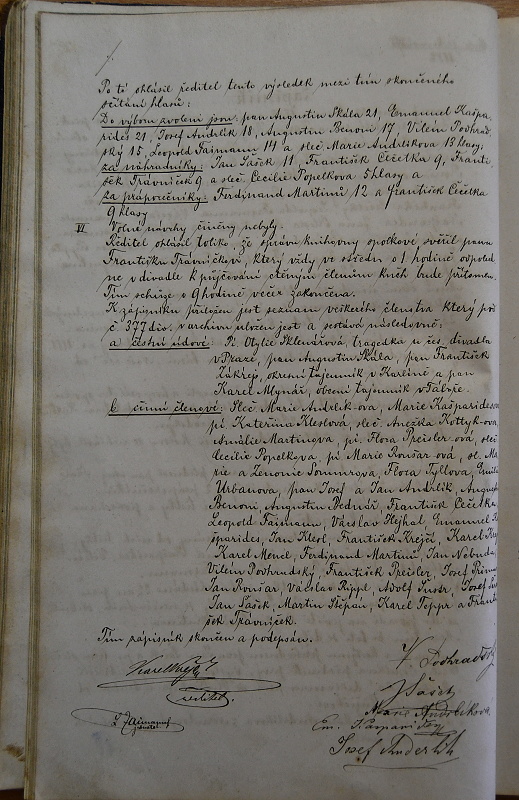 Po té ohlásil ředitel tento výsledek mezi tím skončeného
sčítání hlasů:
Do výboru zvoleni jsou: pan Augustin Skála 21, Emanuel Kašpa-
rides 21, Josef Andrlík 18, Augustin Benoni 17, Vilém Podhrad-
ský 15, Leopold Faimann 14 a sleč. Marie Andrlíkova 13 hlasy;
za náhradníky: Jan Šašek 11, František Čečetka 9, Franti-
šek Trávníček 9 a sleč. Cecilie Popelkova 5 hlasy a
za práporečníky: Ferdinand Martinů 12 a František Čečetka
9 hlasy
VI. Volné návrhy činěny nebyly.
Ředitel ohlásil toliko, že správu knihovny spolkové svěřil panu
Františku Trávníčkovi, který vždy ve středu o 1 hodině odpoled
ne v divadle k půjčování ctěným členům kněh bude přítomen.
Tím schůze o 9 hodině večer zakončena.
K zápisníku přiložen jest seznam veškerého členstva který při
č 377 dio. v archivu uložen jest a sestává následovně:
a čestní údové: Pí. Otylie Sklenářová, tragedka u čes. divadla
v Praze, pan Augustin Skála, pan František
Zákrejs, okresní tajemník v Karlíně a pan
Karel Mlynář, obecní tajemník v Táboře.
b činní členové: Sleč Marie Andrlík-ova, Marie Kašparidesova
pí. Kateřina Kleslová, sleč. Anežka Kottyk-ova,
Amálie Martinova, pí. Flora Preisler-ová, sleč
Cecilie Popelkova, pí Marie Ronšar-ová, sl. Ma-
rie a Zenonie Sommrova, Flora Tyllova, Emilie
Urbanova, pan Josef a Jan Andrlík, Augustin
Benoni, Augustin Bednář, František Čečetka
Leopold Faimann, Václav Hejhal, Emanuel Ka-
šparides, Jan Klesl, František Krejčí, Karel
Karel Mencl, Ferdinand Martinů, Jan Nebuda,
Vilém Podhradský, František Preisler, Josef
Jan Ronšar, Václav Rippl, Adolf Šustr, Josef
Jan Šašek, Martin Štěpán, Karel Teppr a Franti-
šek Trávníček.
Tím zápisník skončen a podepsán.
V. Podhradský
ředitel.
J Šašek
Marie Andrlíkova
L Faimann
Em. Kasparides
Josef Anderlik